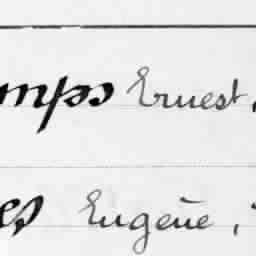 mps Ernest,
es Eugène,